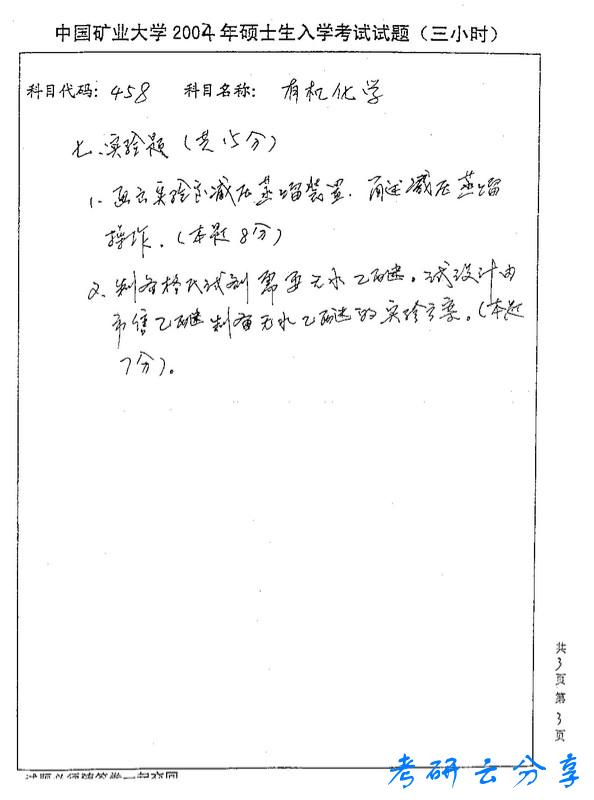 中国矿业大学2004年硕士生入学考试试题（三小时）
科目代码：458 科目名称：有机化学
七、实验题（共15分）
1、画出实验室减压蒸馏装置，简述减压蒸馏
操作。（本题8分）
2、制备格氏试剂需要无水乙醚。试设计由
市售乙醚制备无水乙醚的实验方案。（本题
7分）。
共3页第3页
试题必须随答卷一起交回
考研云分享